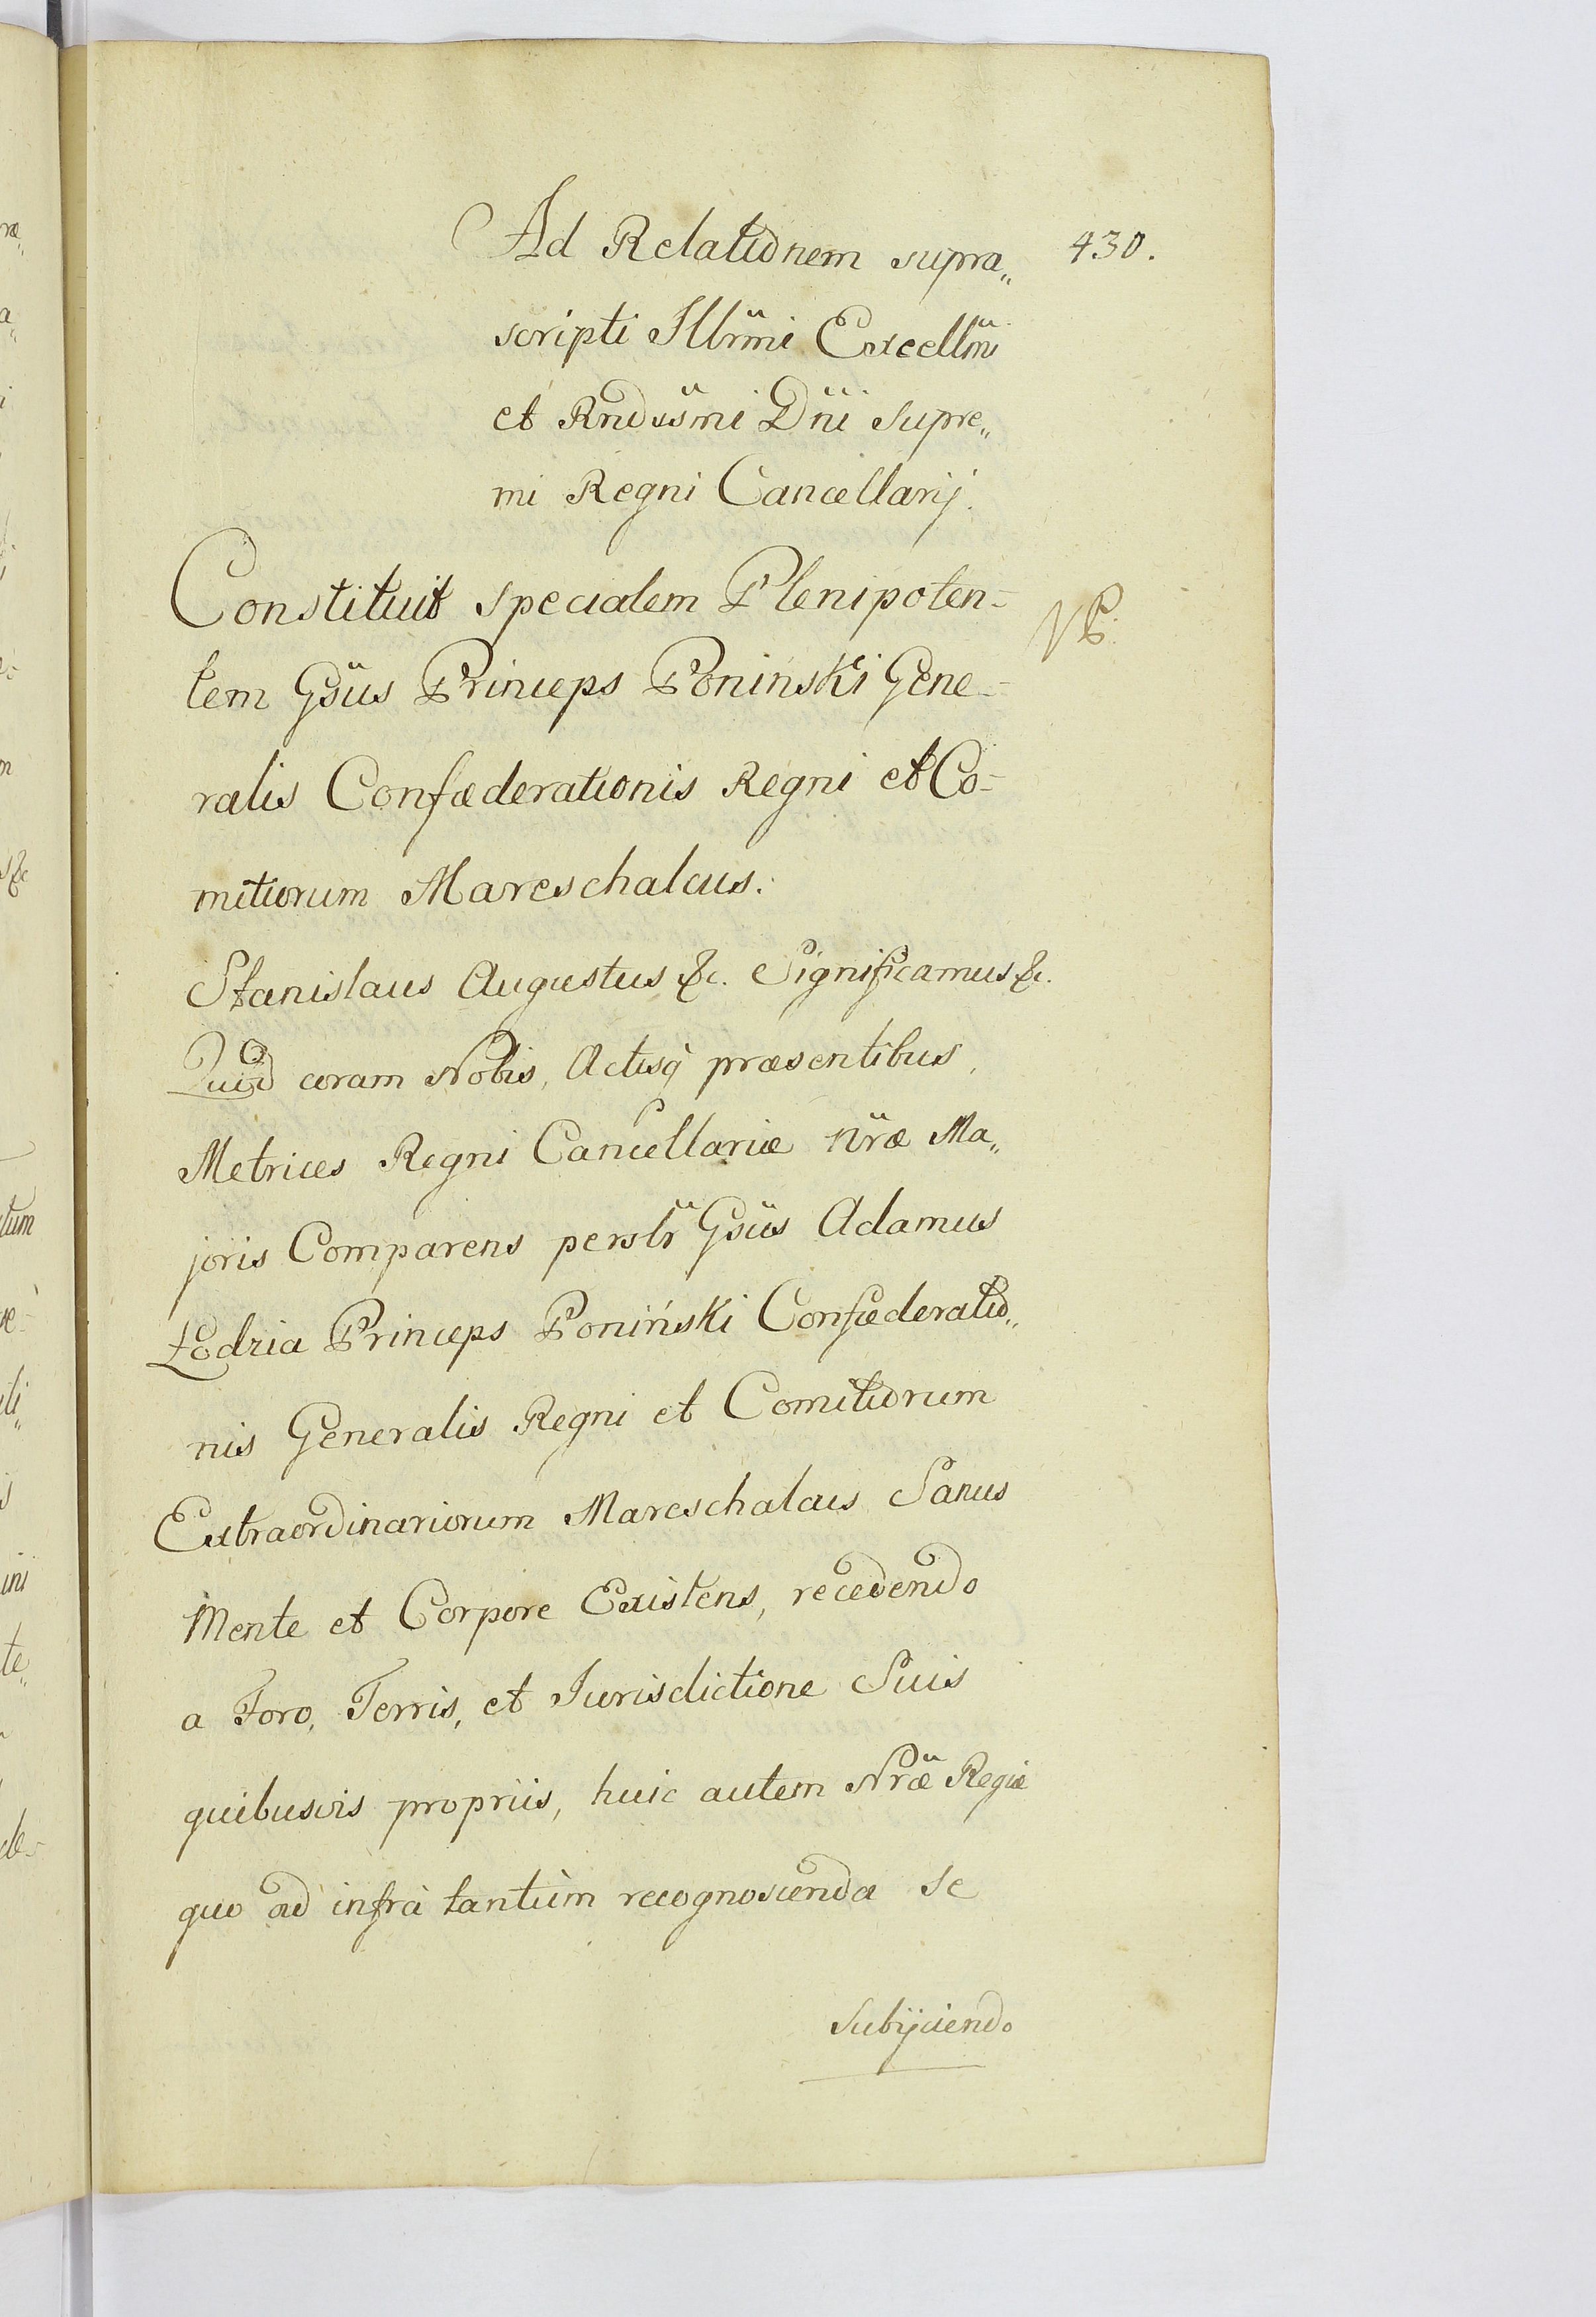 Ad Relationem supra„
430.
scripti Illrm̃i Excellm̃i
et Rndsm̃i Dñi Supre„
mi Regni Cancellarij.
Constituit specialem Plenipoten-
NB.
tem Gsũs Princeps Poninski Gene-
ralis Confœderationis Regni et Co-
mitiorum Mareschalcus.
Stanislaus Augustus &c. Significamus &c.
Quia coram Nobis, Actisq̃ præsentibus,
Metrices Regni Cancellariæ nr̃æ Ma„
joris Comparens persłr̃ Gsũs Adamus
Łodzia Princeps Poniński Confœderatio„
nis Generalis Regni et Comitiorum
Extraordinariorum Mareschalcus Sanus
Mente et Corpore Existens, recedendo
a Foro, Terris, et Jurisdictione Suis
quibusvis propriis, huic autem Nr̃æ Regiæ
quo ad infrà tantùm recognoscenda se
Subijciendo